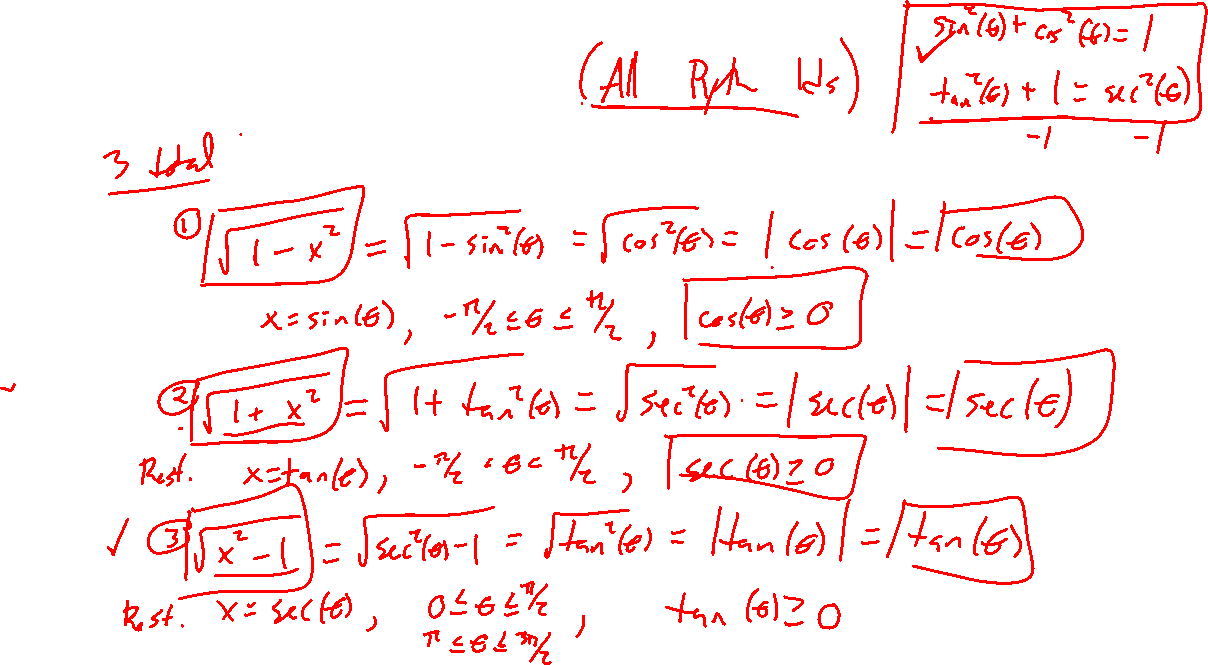 sin²(θ) + cos²(θ) = 1
(All Pyth Ids) tan²(θ) + 1 = sec²(θ)
-1 -1
3 total
① √(1 - x²) = √(1 - sin²(θ)) = √(cos²(θ)) = |cos(θ)| = cos(θ)
x = sin(θ), -π/2 ≤ θ ≤ π/2, cos(θ) ≥ 0
② √(1 + x²) = √(1 + tan²(θ)) = √(sec²(θ)) = |sec(θ)| = sec(θ)
Rest. x = tan(θ), -π/2 < θ < π/2, sec(θ) ≥ 0
✓ ③ √(x² - 1) = √(sec²(θ) - 1) = √(tan²(θ)) = |tan(θ)| = tan(θ)
Rest. x = sec(θ), 0 ≤ θ ≤ π/2, tan(θ) ≥ 0
π ≤ θ ≤ 3π/2